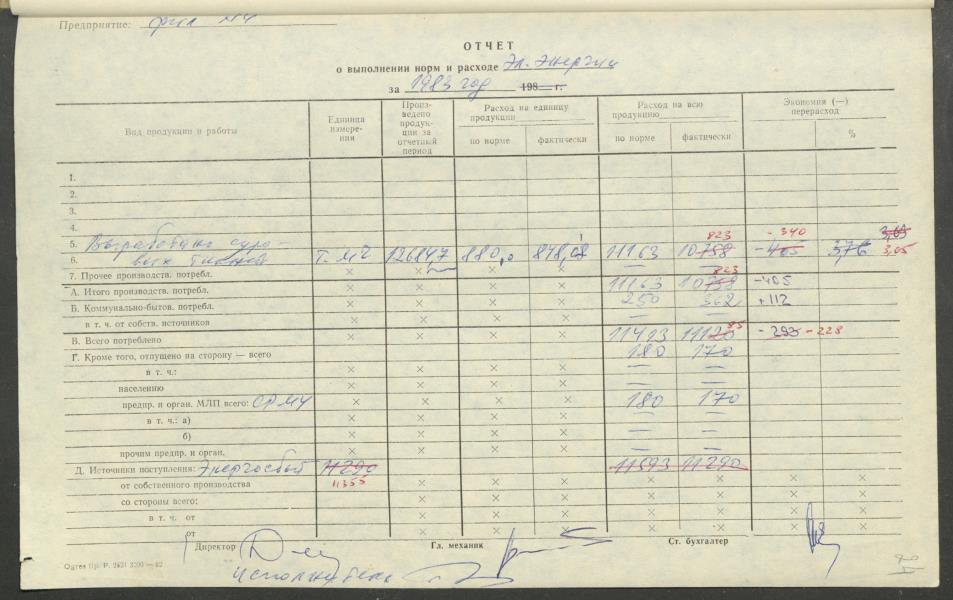 Предприятие:
ОТЧЕТ
о выполнении норм и расходе Эл. Энергии
за 1983 год 198 г.
Вид продукции и работы
Единица измере-ния
Произ-ведено продук-ции за отчетный период
Расход на единицу продукции
по норме фактически
Расход на всю продукцию
по норме фактически
Экономия (—) перерасход
%
1.
2.
3.
4.
823 - 340 3,05
5. Выработано суро-
6. вых тканей Т. М² 126847 880,0 848,08 11163 10758 -405 3,76 3,05
7. Прочее производств. потребл. × × × × — —
823
А. Итого производств. потребл. × × × × 11163 10758 -405
Б. Коммунально-бытов. потребл. 250 362 +112
в т. ч. от собств. источников × × × × — —
В. Всего потреблено × × × × 11413 11120 85 - 293 - 228
Г. Кроме того, отпущено на сторону — всего 180 170
в т. ч.: × × × × — —
населению × × × × — —
предпр. и орган. МЛП всего: СРМУ × × × × 180 170
в т. ч.: а) × × × × — —
б) × × × × — —
прочим предпр. и орган. × × × × — —
Д. Источники поступления: Энергосбыт 11290 11593 11290
от собственного производства 11355 × × × × × × ×
со стороны всего: × × × × × × ×
в т. ч. от × × × × × × ×
от × × × × × × ×
Директор Гл. механик Ст. бухгалтер
Исполнитель
Ogres tip. P. 2621 3200—82